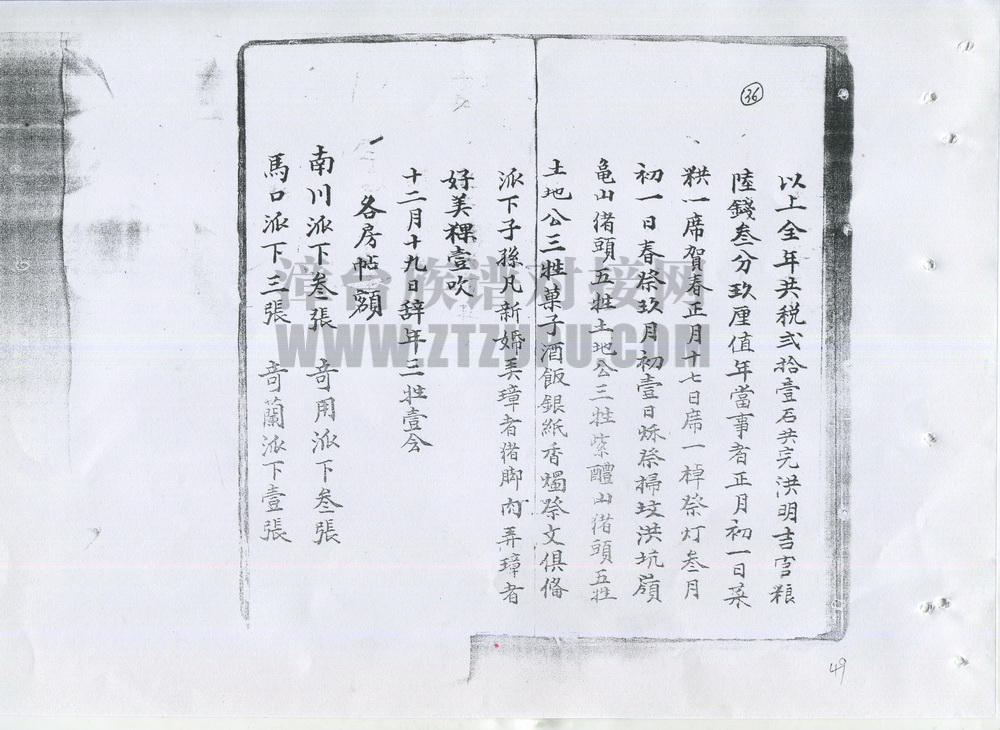 36
以上全年共税弍拾壹石共完洪明吉官粮
陸錢叁分玖厘值年當事者正月初一日菜
粠一席賀春正月十七日席一棹祭灯叁月
初一日春祭玖月初壹日秌祭掃坟洪坑嶺
亀山猪頭五牲土地公三牲紫醴山猪頭五牲
土地公三牲菓子酒飯銀紙香燭祭文俱俻
派下子孫凡新婚弄璋者猪脚肉弄璋者
好美粿壹吹
十二月十九日辞年三牲壹仝
各房帖額
南川派下叁張 奇用派下叁張
馬口派下三張 奇蘭派下壹張
49
漳台族谱对接网
WWW.ZTZUPU.COM